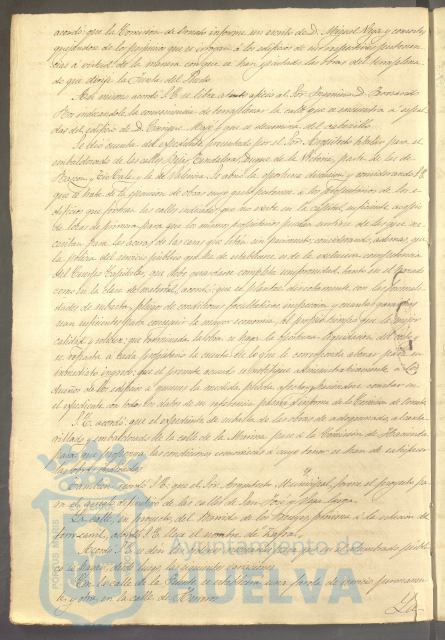 acordó: que la Comision de Ornato informe un escrito de D. Miguel Vega y consortes
quejándose de los perjuicios que se infieren á los edificios de sus respectivas pertenencias
á virtud de la manera con que se han ejecutado las obras del terraplenado
que dirije la Junta del Puerto
Así mismo acordó S.E. se libre atento oficio al Sor. Ingeniero D.
indicándole la conveniencia de terraplenar la calle que se encuentra á espaldas
del edificio de D. y que se denomina del
Se dió cuenta del expediente presentado por el Sor. Arquitecto titular para el
embaldosado de las calles Rojas, Duque de la Victoria, parte de las de
y la de Valencia. Se abrió la oportuna discusion y considerando S.E.
que se trata de la ejecucion de obras cuyo gasto pertenece á los propietarios de los edificios
que forman las calles indicadas: que no existe en la capital suficiente acopio
de losas de primera para que los mismos propietarios puedan surtirse de las que necesitan
para las aceras de las casas que están sin pavimento; considerando, ademas, que
la policia del servicio público que ha de establecerse es de la exclusiva competencia
del Cuerpo Capitular, que debe guardarse completa uniformidad, tanto en el
como en la clase de material, acordó: que se plantee directamente con las formalidades
de subasta, pliego de condiciones facultativas inspeccion y cuantas garantías
sean suficientes para conseguir la mayor economia, al propio tiempo que la mejor
calidad y solidez; que terminada la obra se haga la oportuna liquidacion del costo y
se reparta á cada propietario la cuenta de lo que le corresponda abonar para su
inmediato ingreso: que el presente acuerdo se notifique administrativamente á los
dueños de los edificios á quienes la medida pueda afectar y haciéndose constar en
el expediente con todos los datos de su referencia pase á informe de la Comision de Ornato
S.E. acordó: que el expediente de subasta de las obras de adoquinado, alcantarillado
y embaldosado de la calle de la Marina pase á la Comision de Hacienda
para que proponga las condiciones economicas á cuyo tenor se han de satisfacer
las obras indicadas.
Tambien acordó S.E. que el Sor. Arquitecto Municipal forme el proyecto para
el arreglo definitivo de las calles de San José y
La calle, en proyecto, del Barrido de los próxima á la estacion del
ferro-carril, acordó S.E. lleve el nombre de Zafra.
Acordó S.E. se den las órdenes convenientes para que en el alumbrado público
se hagan, desde luego, las siguientes variaciones.
En la calle de la Fuente se establecerá una farola de servicio permanente,
y otra en la calle de
La
Ayuntamiento de
HUELVA
PORTUS MARIS